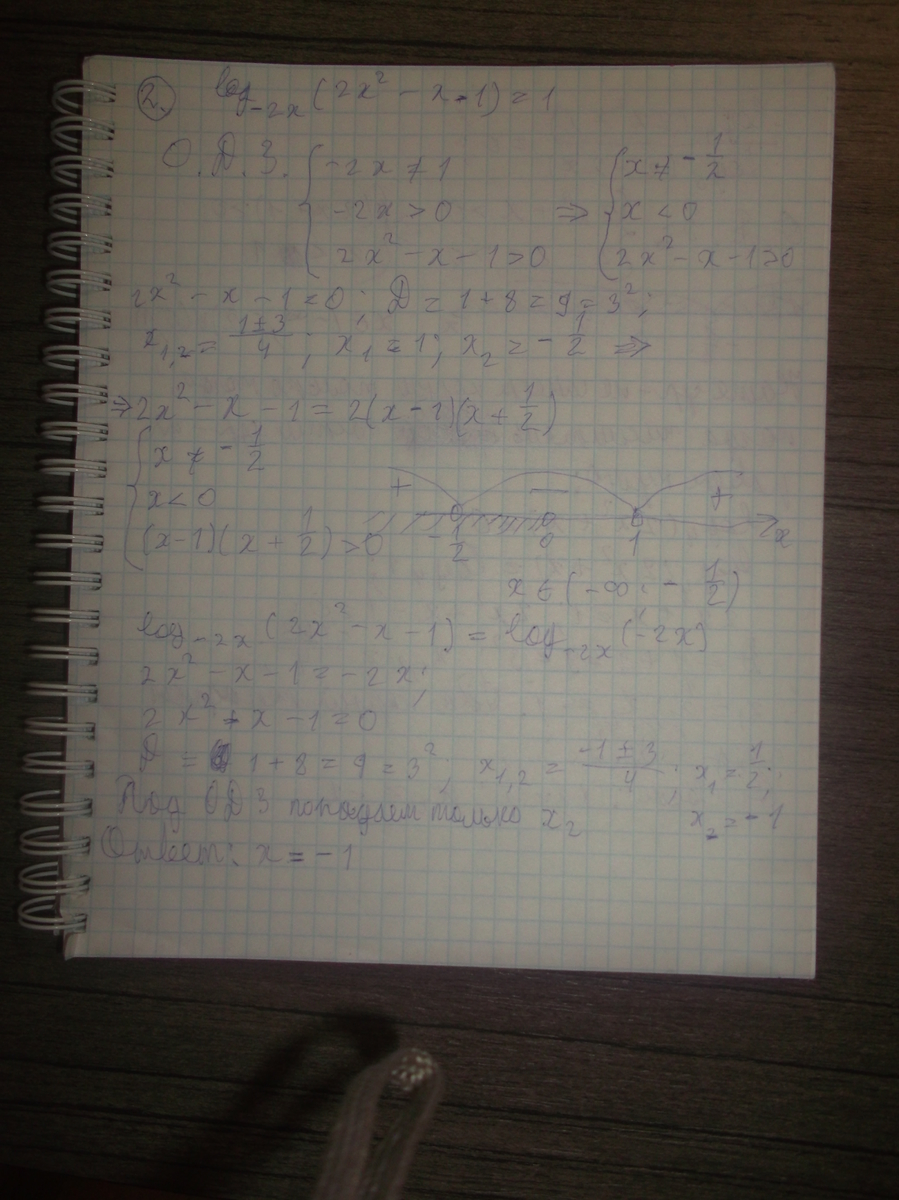 2. log₋₂ₓ(2x² - x - 1) = 1
О.Д.З. { -2x ≠ 1 ⇒ { x ≠ -1/2
-2x > 0 x < 0
2x² - x - 1 > 0 2x² - x - 1 > 0
2x² - x - 1 = 0; D = 1 + 8 = 9 = 3²;
x₁,₂ = (1 ± 3)/4; x₁ = 1; x₂ = -1/2 ⇒
⇒ 2x² - x - 1 = 2(x - 1)(x + 1/2)
{ x ≠ -1/2
x < 0 + − +
(x-1)(x + 1/2) > 0 -1/2 0 1 x
x ∈ (-∞; -1/2)
log₋₂ₓ(2x² - x - 1) = log₋₂ₓ(-2x)
2x² - x - 1 = -2x;
2x² + x - 1 = 0
D = 1 + 8 = 9 = 3²; x₁,₂ = (-1 ± 3)/4; x₁ = 1/2;
Под ОДЗ попадает только x₂ x₂ = -1
Ответ: x = -1